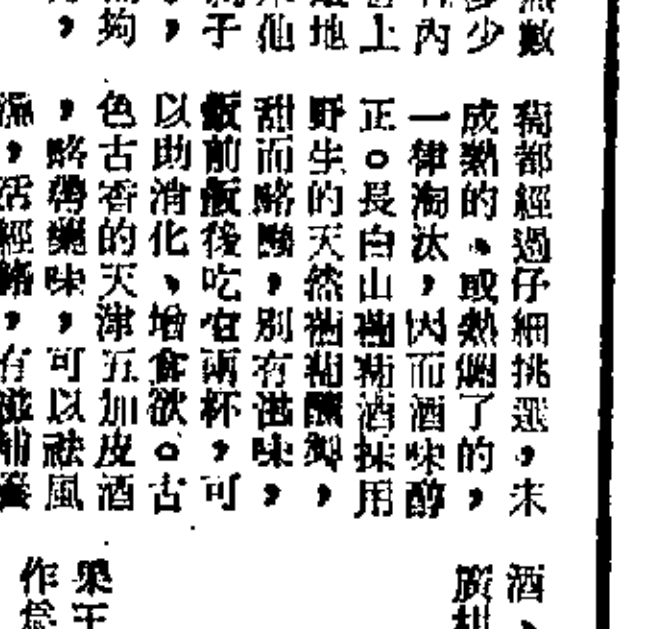 無數
多少
內
上
地
仙
于
，
夠
，
萄都經過仔細挑選，未
成熟的、或熟爛了的，
一律淘汰，因而酒味醇
正。長白山葡萄酒採用
野生的天然葡萄釀製，
甜而略酸，別有滋味，
飯前飯後吃它兩杯，可
以助消化、增食欲。古
色古香的天津五加皮酒
，略帶藥味，可以祛風
濕，活經絡，有滋補養
酒、
廣柑
果王
作爲